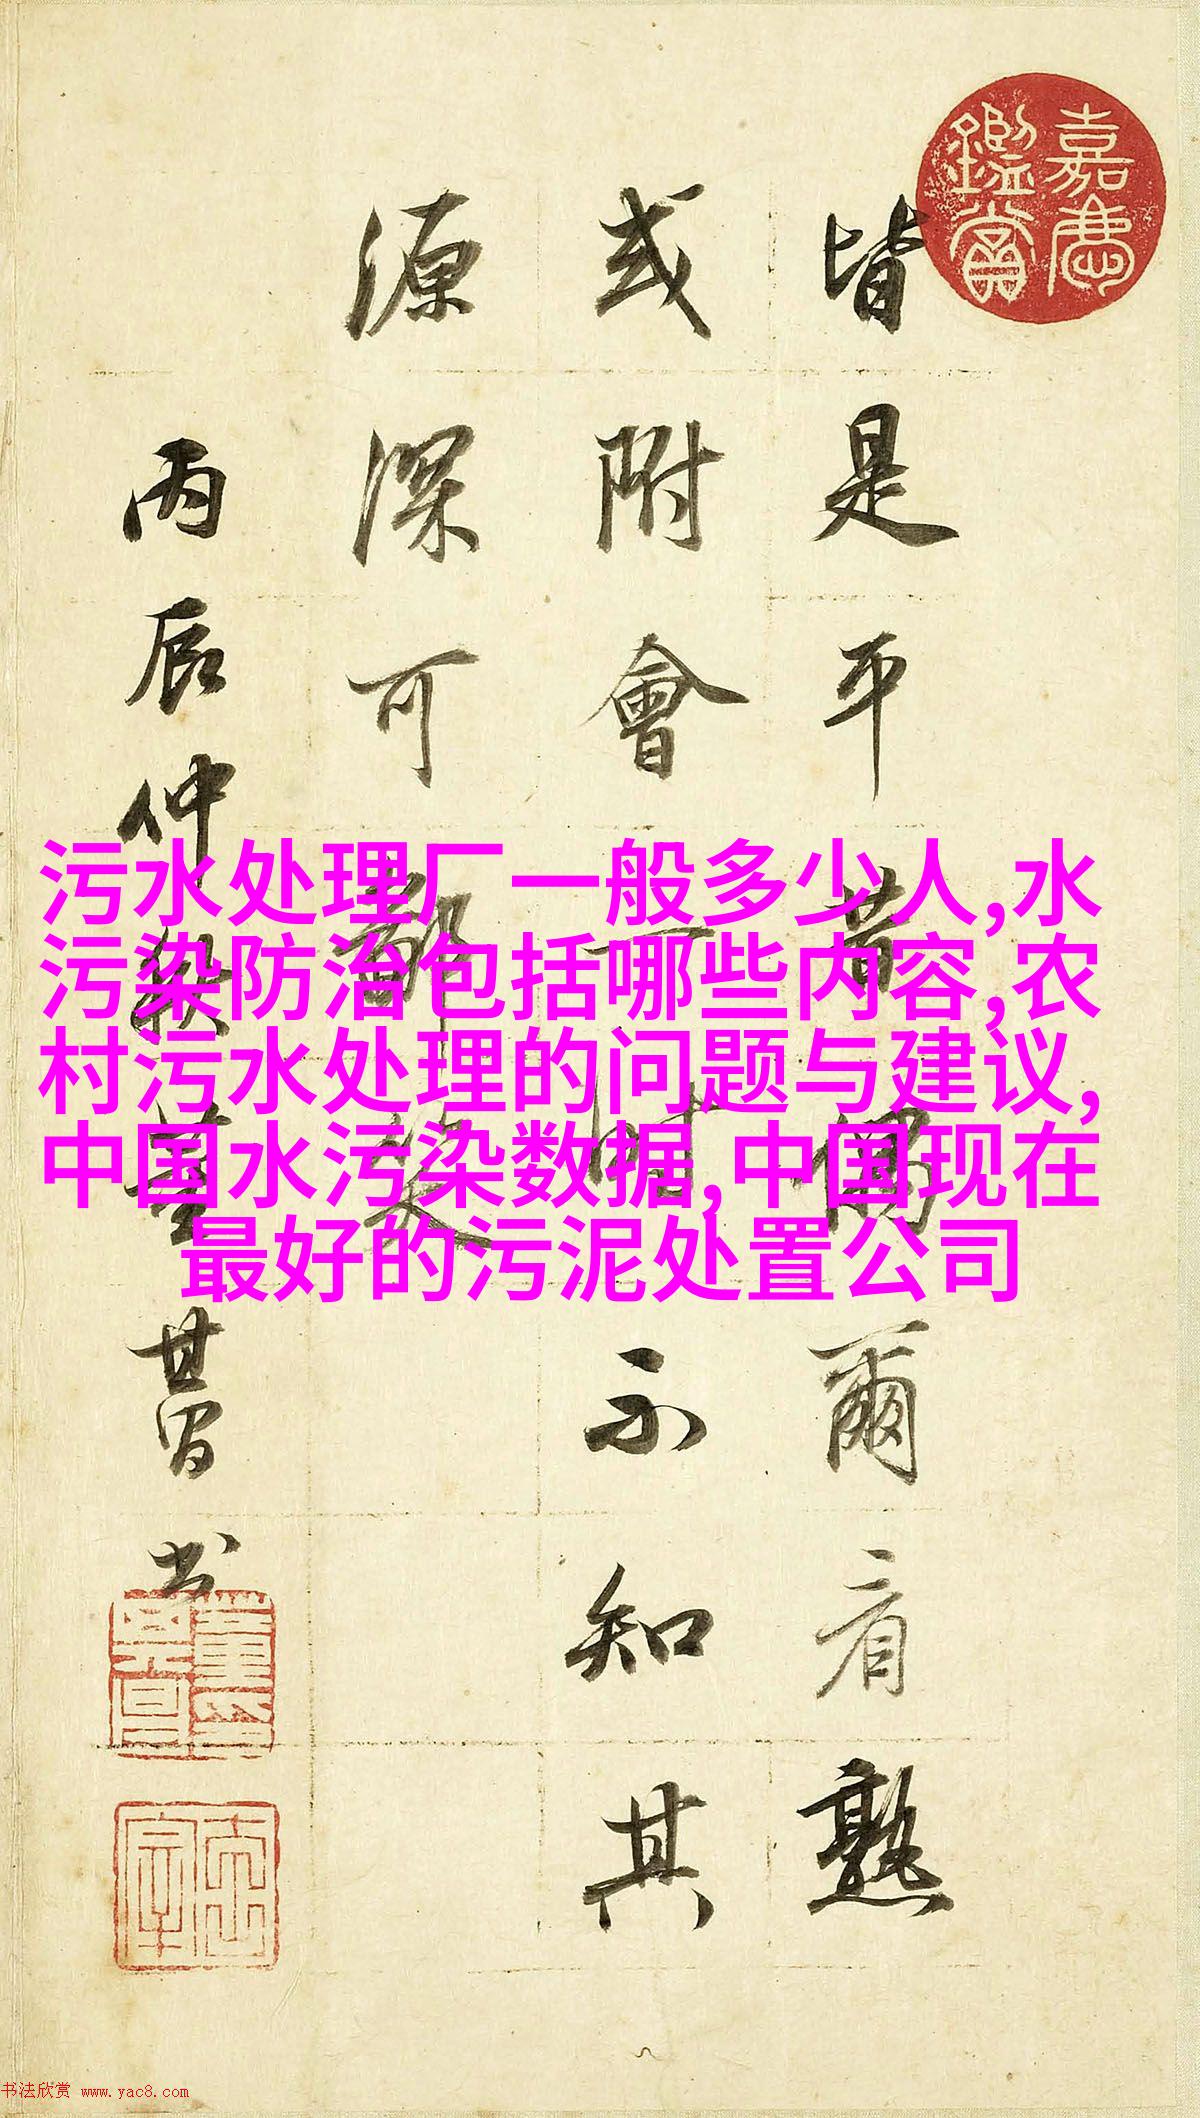 皆是平昔偶爾看熟
或附會一時不知其
源深可鄙笑
丙辰仲秋董其昌書
嘉慶鑑賞
污水处理厂一般多少人,水
污染防治包括哪些内容,农
村污水处理的问题与建议,
中国水污染数据,中国现在
最好的污泥处置公司
书法欣赏 www.yac8.com